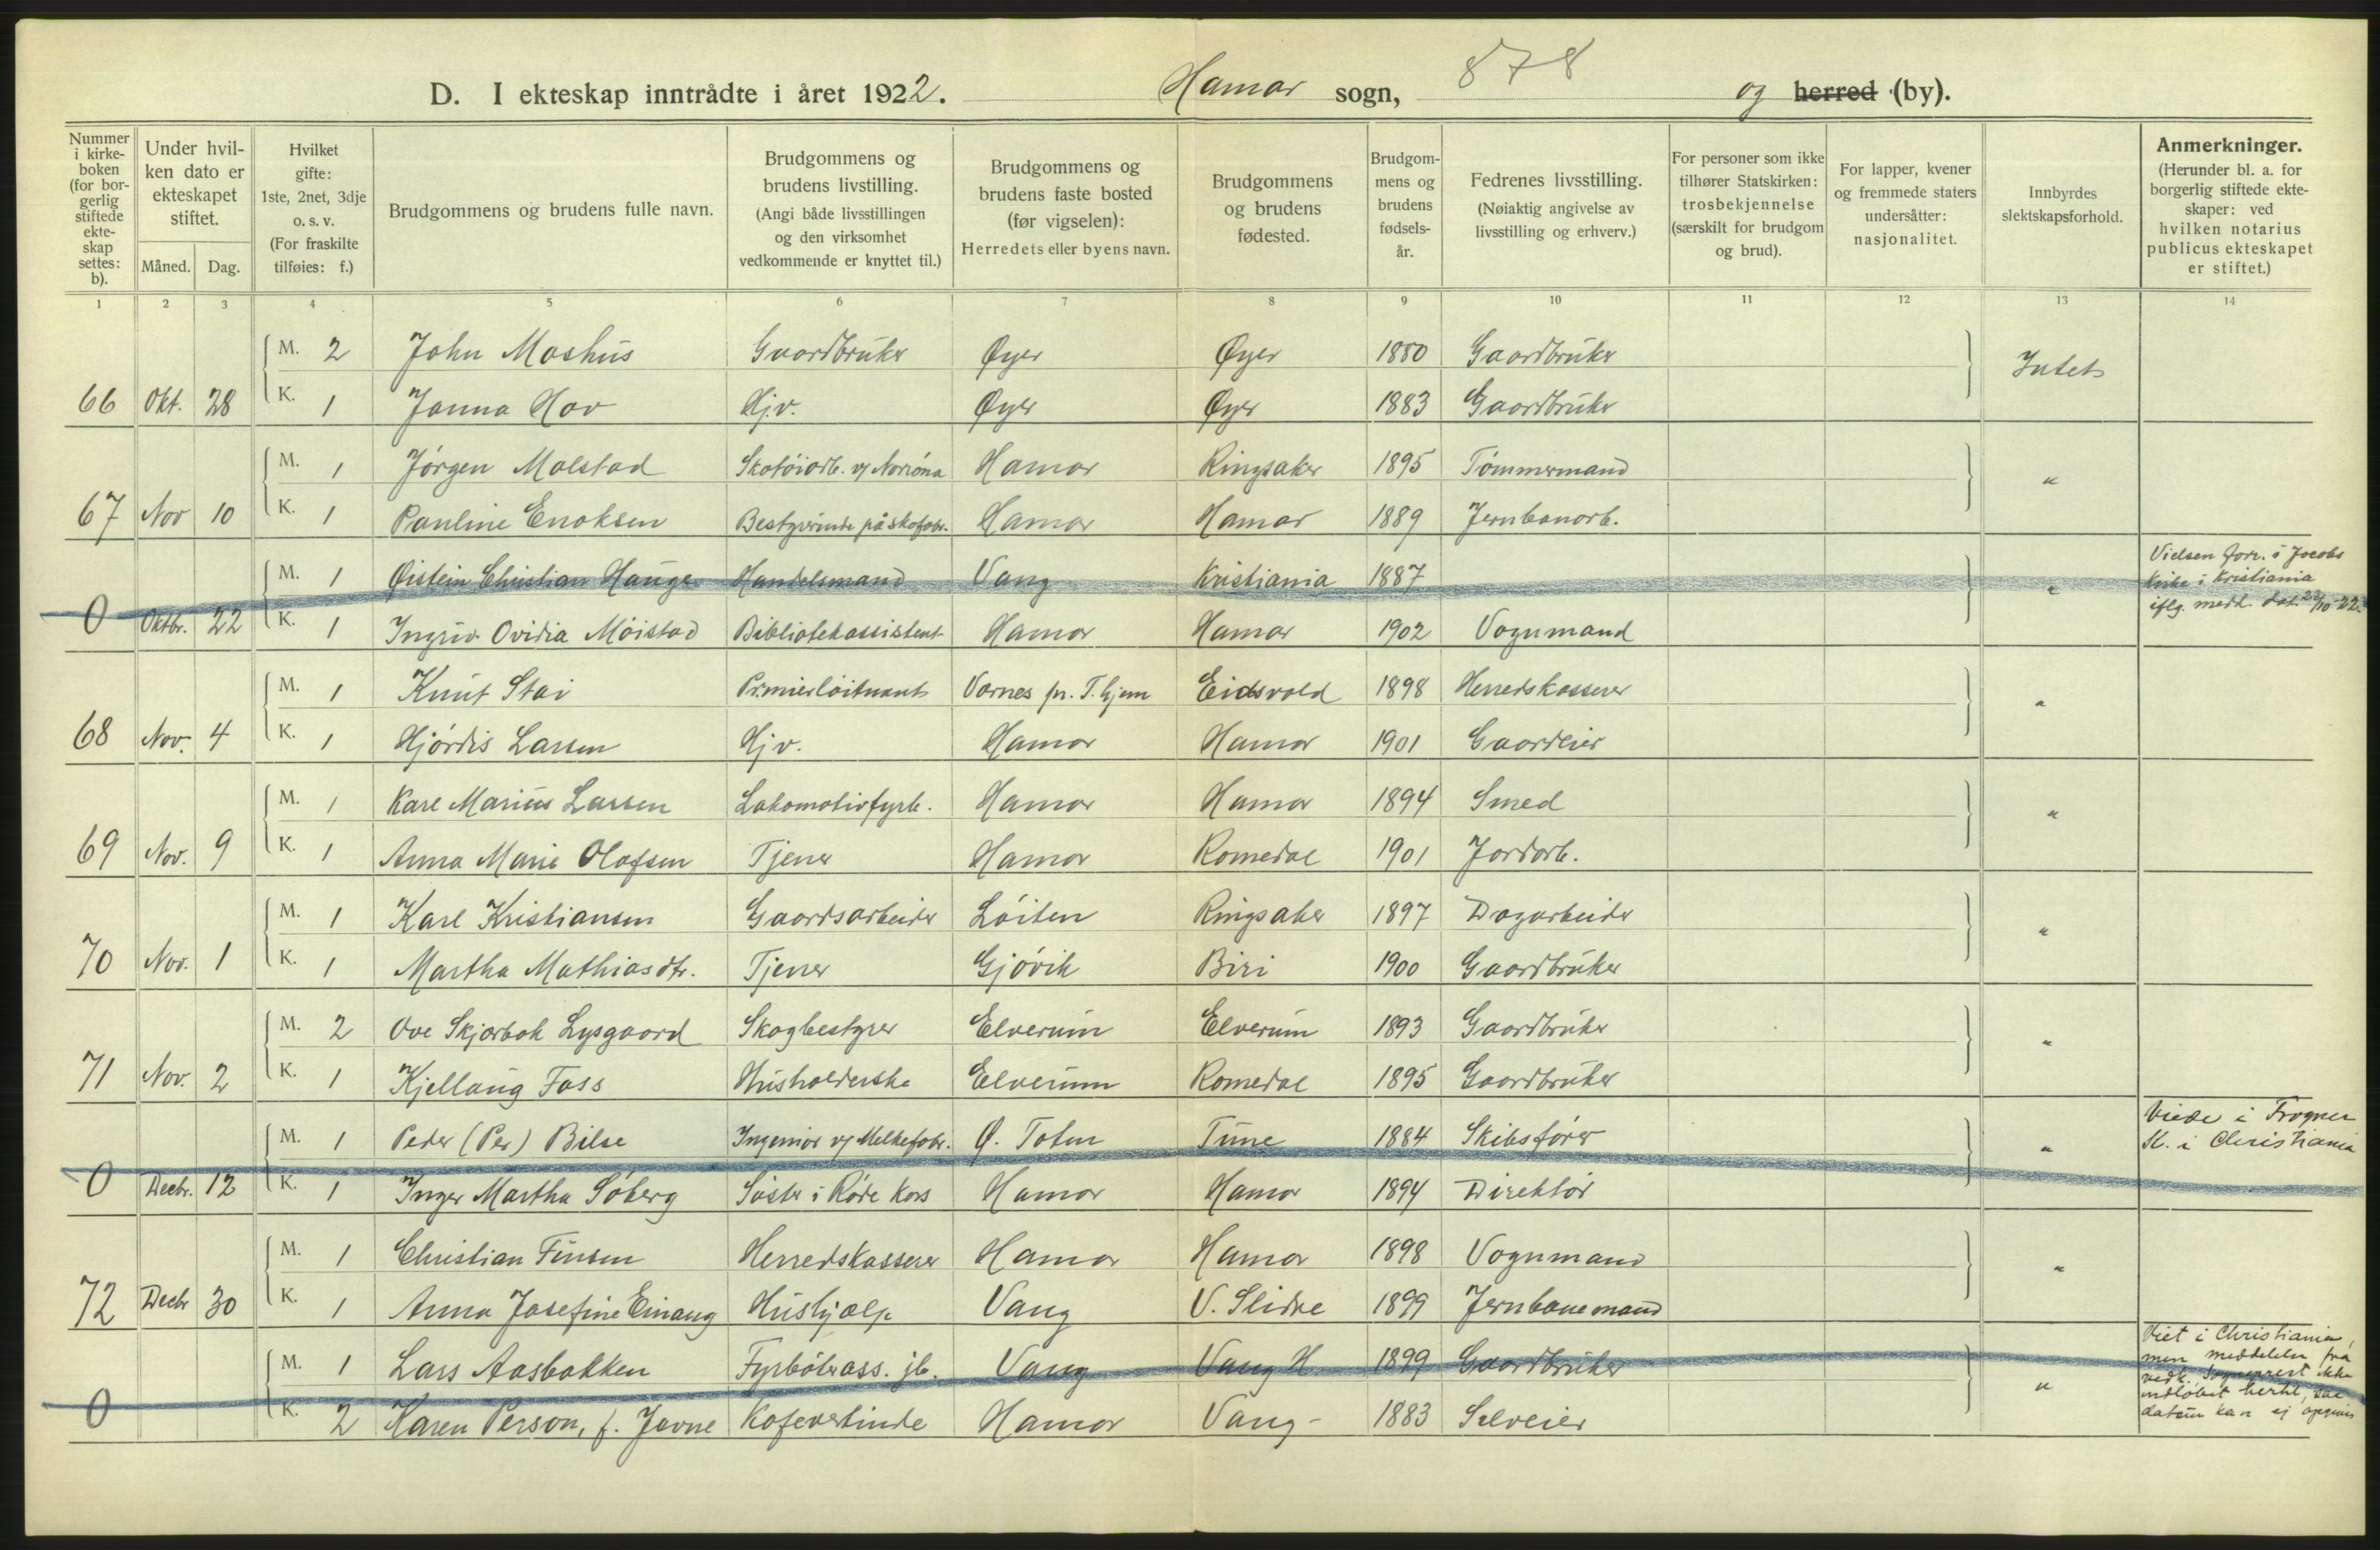 878
D. I ekteskap inntrådte i året 1922. Hamar sogn, og herred (by).
Nummer i kirke-boken (for bor-gerlig stiftede ekte-skap settes: b).
Under hvil-ken dato er ekteskapet stiftet.
Måned. Dag.
Hvilket gifte: 1ste, 2net, 3dje o. s. v. (For fraskilte tilføies: f.)
Brudgommens og brudens fulle navn.
Brudgommens og brudens livstilling. (Angi både livsstillingen og den virksomhet vedkommende er knyttet til.)
Brudgommens og brudens faste bosted (før vigselen): Herredets eller byens navn.
Brudgommens og brudens fødested.
Brudgom-mens og brudens fødsels-år.
Fedrenes livsstilling. (Nøiaktig angivelse av livsstilling og erhverv.)
For personer som ikke tilhører Statskirken: trosbekjennelse (særskilt for brudgom og brud).
For lapper, kvener og fremmede staters undersåtter: nasjonalitet.
Innbyrdes slektskapsforhold.
Anmerkninger. (Herunder bl. a. for borgerlig stiftede ekte-skaper: ved hvilken notarius publicus ekteskapet er stiftet.)
1 2 3 4 5 6 7 8 9 10 11 12 13 14
M. 2 John Moshus Gaardbruker Øyer Øyer 1880 Gaardbruker Intet
66 Okt. 28 K. 1 Janna Hov Hj.v. Øyer Øyer 1883 Gaardbruker
M. 1 Jørgen Molstad Skotøiarb. v/ Norrøna Hamar Ringsaker 1895 Tømmermand "
67 Nov 10 K. 1 Pauline Enoksen Bestyrerinde på skofabr. Hamar Hamar 1889 Jernbanarb.
M. 1 Øistein Christian Hauge Handelsmand Vang Kristiania 1887 " Vielsen forr. i Jacobs Kirke i Kristiania iflg. medd. dat. 22/10-22.
0 Oktbr. 22 K. 1 Ingrid Ovidia Møistad Bibliotekassistent Hamar Hamar 1902 Vognmand
M. 1 Knut Stai Premierløitnant Værnes pr. T.hjem Eidsvold 1898 Herredskasserer "
68 Nov. 4 K. 1 Hjørdis Larsen Hj v. Hamar Hamar 1901 Gaardeier
M. 1 Karl Marius Larsen Lokomotivfyrb. Hamar Hamar 1894 Smed "
69 Nov. 9 K. 1 Anna Marie Olafsen Tjener Hamar Romedal 1901 Jordarb.
M. 1 Karl Kristiansen Gaardsarbeider Løiten Ringsaker 1897 Dagarbeider "
70 Nov. 1 K. 1 Martha Mathiasdtr. Tjener Gjøvik Biri 1900 Gaardbruker
M. 2 Ove Skjærbæk Lysgaard Skogbestyrer Elverum Elverum 1893 Gaardbruker "
71 Nov. 2 K. 1 Kjellaug Foss Husholderske Elverum Romedal 1895 Gaardbruker
M. 1 Peder (Per) Bilse Ingeniør v/ Melkefabr. Ø. Toten Tune 1884 Skibsfører " Viede i Frogner K. i Christiania
0 Decbr. 12 K. 1 Inger Martha Søberg Søster i Røde Kors Hamar Hamar 1894 Direktør
M. 1 Christian Finsen Herredskasserer Hamar Hamar 1898 Vognmand "
72 Decbr 30 K. 1 Anna Josefine Einang Hushjælp Vang V. Slidre 1899 Jernbanemand
M. 1 Lars Aasbakken Fyrbøterass. jb. Vang Vang H 1899 Gaardbruker " Viet i Christiania, men meddelelse fra vedk. Sogneprest ikke indløbet hertil, saa datum kan ej opgives
0 K. 2 Karen Person, f. Javne Kafevertinde Hamar Vang - 1883 Selveier